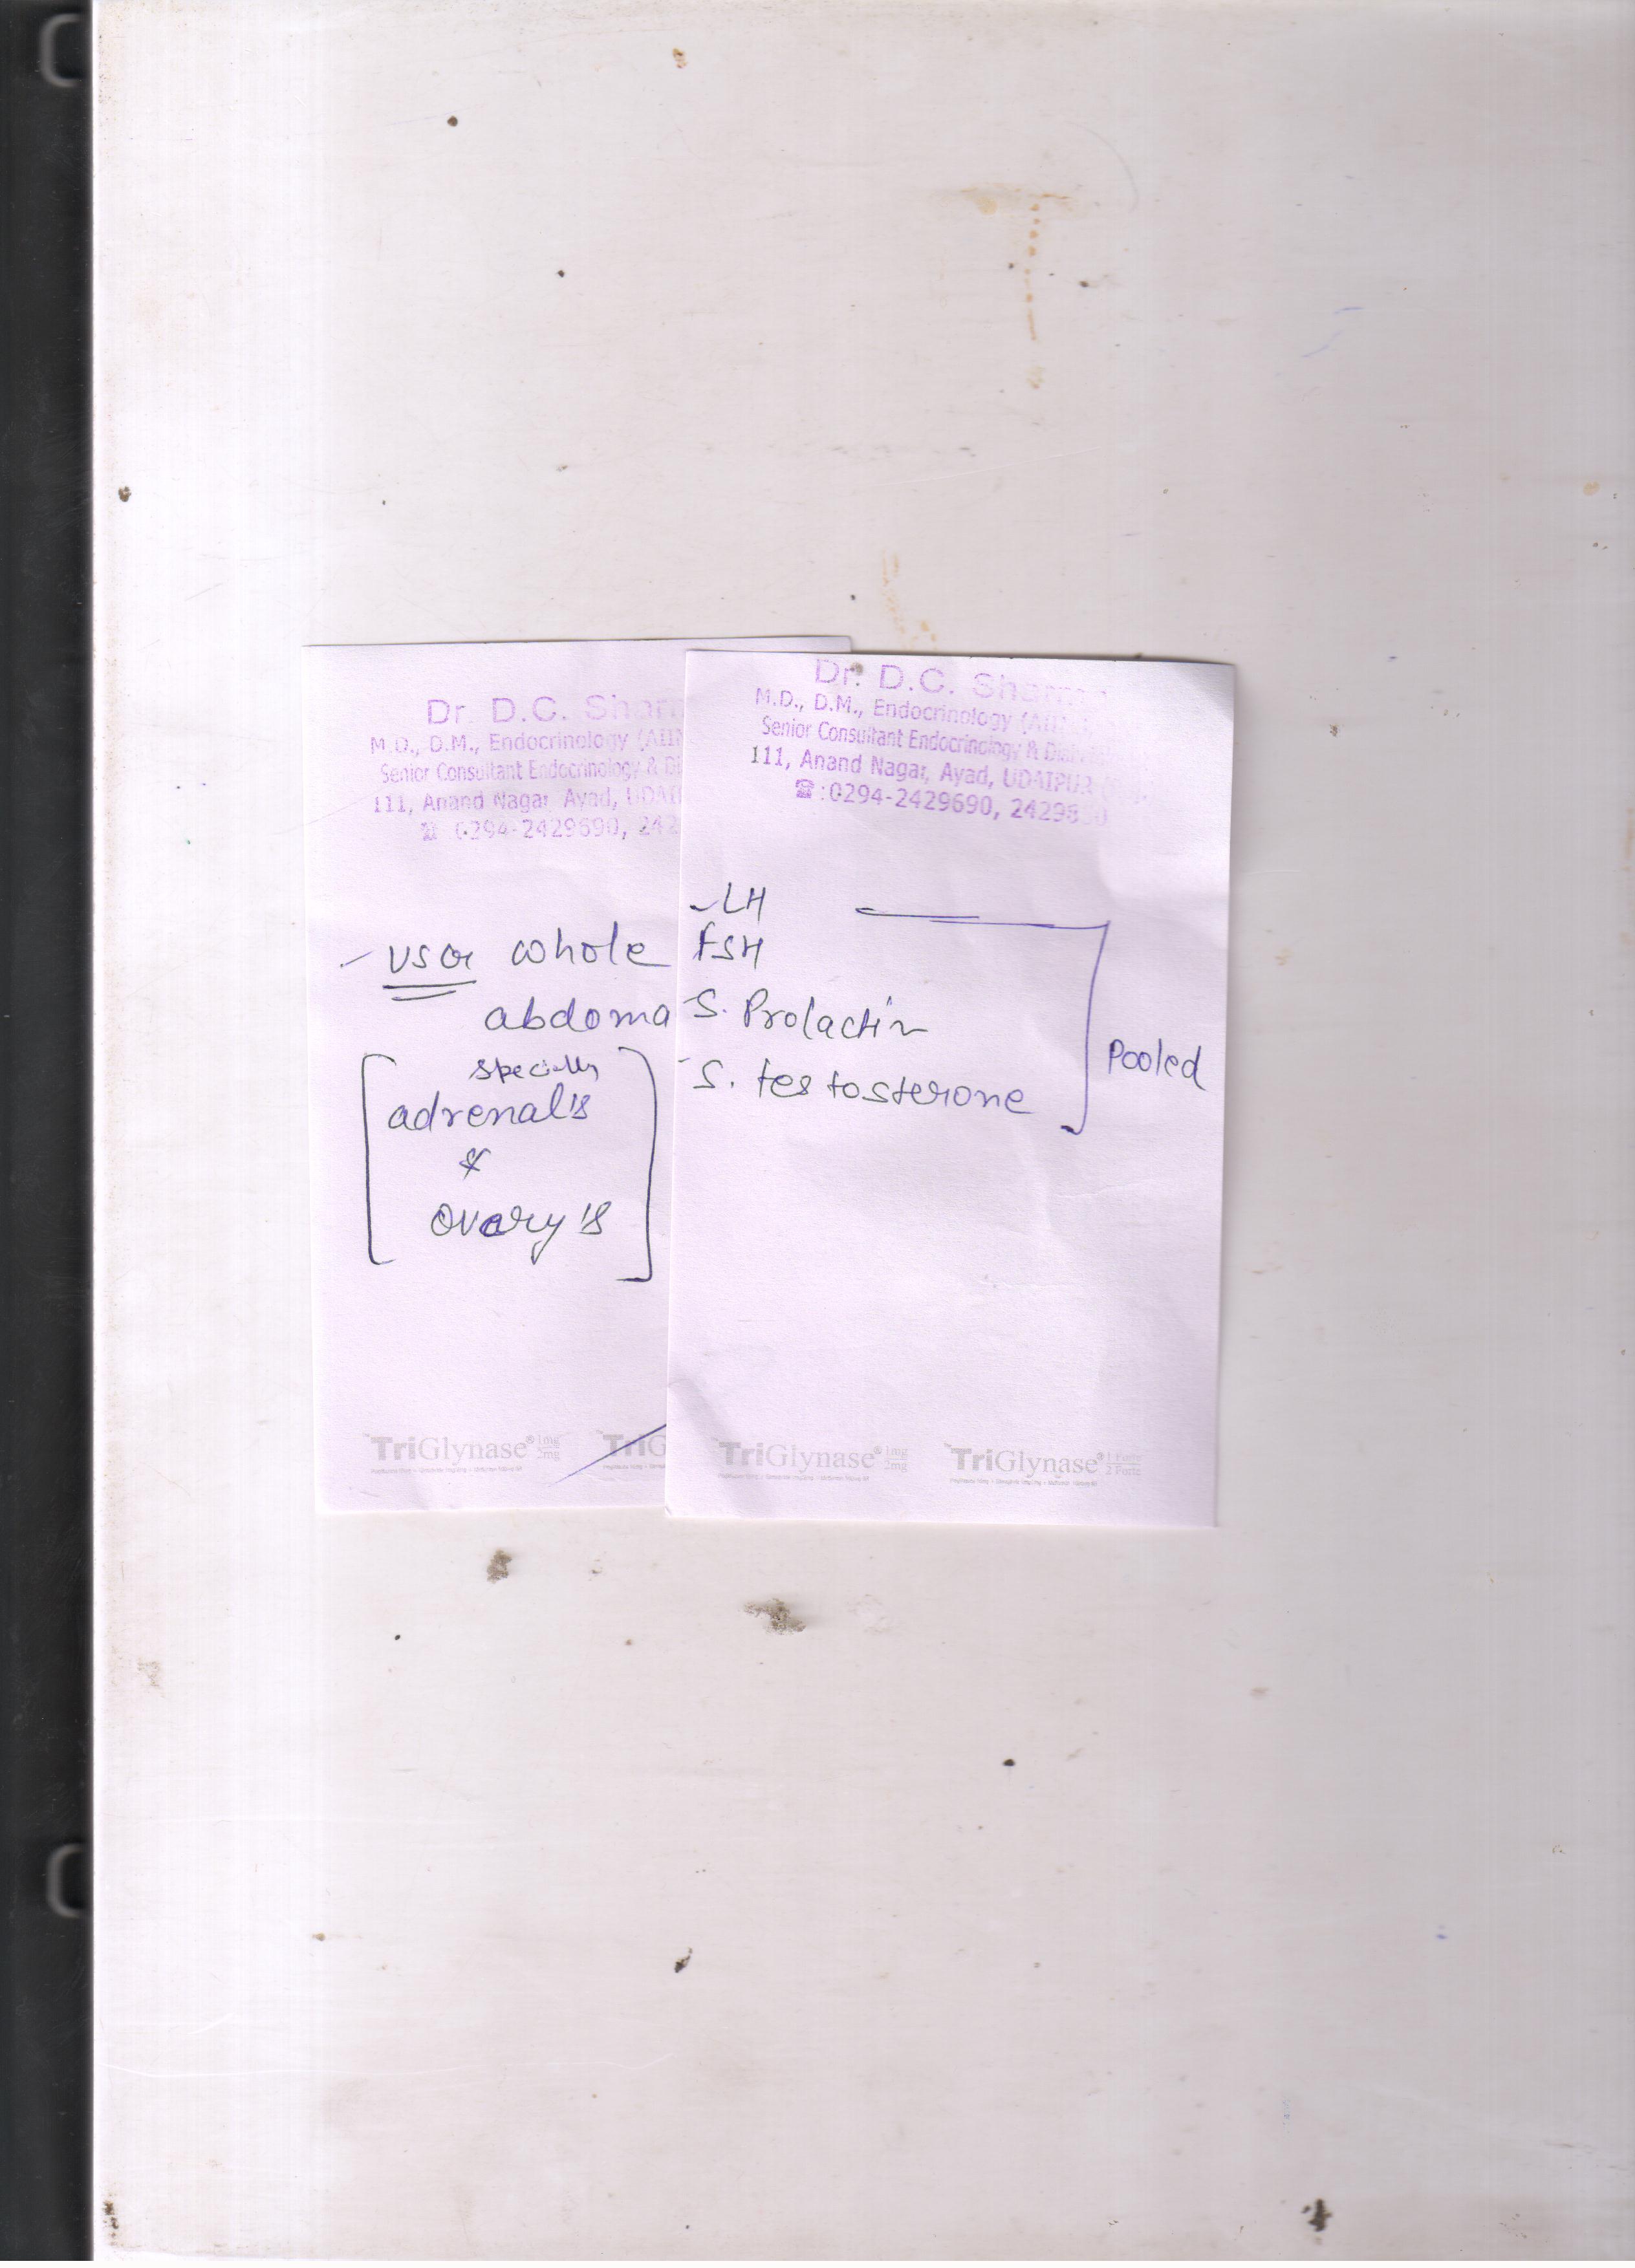 Dr. D.C. Sharm
M.D., D.M., Endocrinology (AII
Senior Consultant Endocrinology & Di
111, Anand Nagar, Ayad, UDAI
☎ 0294-2429690, 242
- USG whole
abdoma
specially
adrenal's
&
ovary's
TriGlynase® 1mg 2mg TriG
Dr. D.C. Sharma
M.D., D.M., Endocrinology (AII
Senior Consultant Endocrinology & Diab
111, Anand Nagar, Ayad, UDAIPUR
☎:0294-2429690, 24298
- LH
FSH
S. Prolactin
S. testosterone
Pooled
TriGlynase® 1mg 2mg TriGlynase® 1 Forte 2 Forte